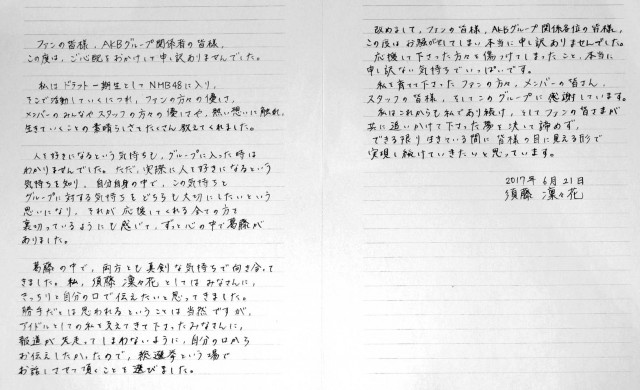 ファンの皆様、AKBグループ関係者の皆様、
この度は、ご心配をおかけして申し訳ありませんでした。
私はドラフト一期生としてNMB48に入り、
そこで活動していくにつれ、ファンの方々の優しさ、
メンバーのみなやスタッフの方々の優しさや、熱い想いに触れ、
生きていくことの素晴らしさをたくさん教えてくれました。
人を好きになるという気持ちも、グループに入った時は
わかりませんでした。ただ、実際に人を好きになるという
気持ちを知り、自分自身の中で、この気持ちと
グループに対する気持ちをどちらも大切にしたいという
思いになり、それが応援してくれる全ての方を
裏切っているようにも感じて、ずっと心の中で葛藤が
ありました。
葛藤の中で、両方とも真剣な気持ちで向き合って
きました。私、須藤凜々花としてはみなさんに、
きっちりと自分の口で伝えたいと思ってきました。
勝手だとは思われるということは当然ですが、
アイドルとしての私を支えてきて下さったみなさんに、
報道が先走ってしまわないように、自分の口から
お伝えしたかったので、総選挙という場で
お話しさせて頂くことを選びました。
改めまして、ファンの皆様、AKBグループ関係各位の皆様、
この度はお騒がせしてしまい本当に申し訳ありませんでした。
応援して下さった方々を傷つけてしまったこと、本当に
申し訳ない気持ちでいっぱいです。
私を育てて下さったファンの方々、メンバーの皆さん、
スタッフの皆様、そしてこのグループに感謝しています。
私はこれからも私であり続け、そしてファンの皆さまが
共に追いかけて下さった夢を決して諦めず、
できる限り生きている間に皆様の目に見える形で
実現し続けていきたいと思っています。
2017年 6月21日
須藤 凜々花